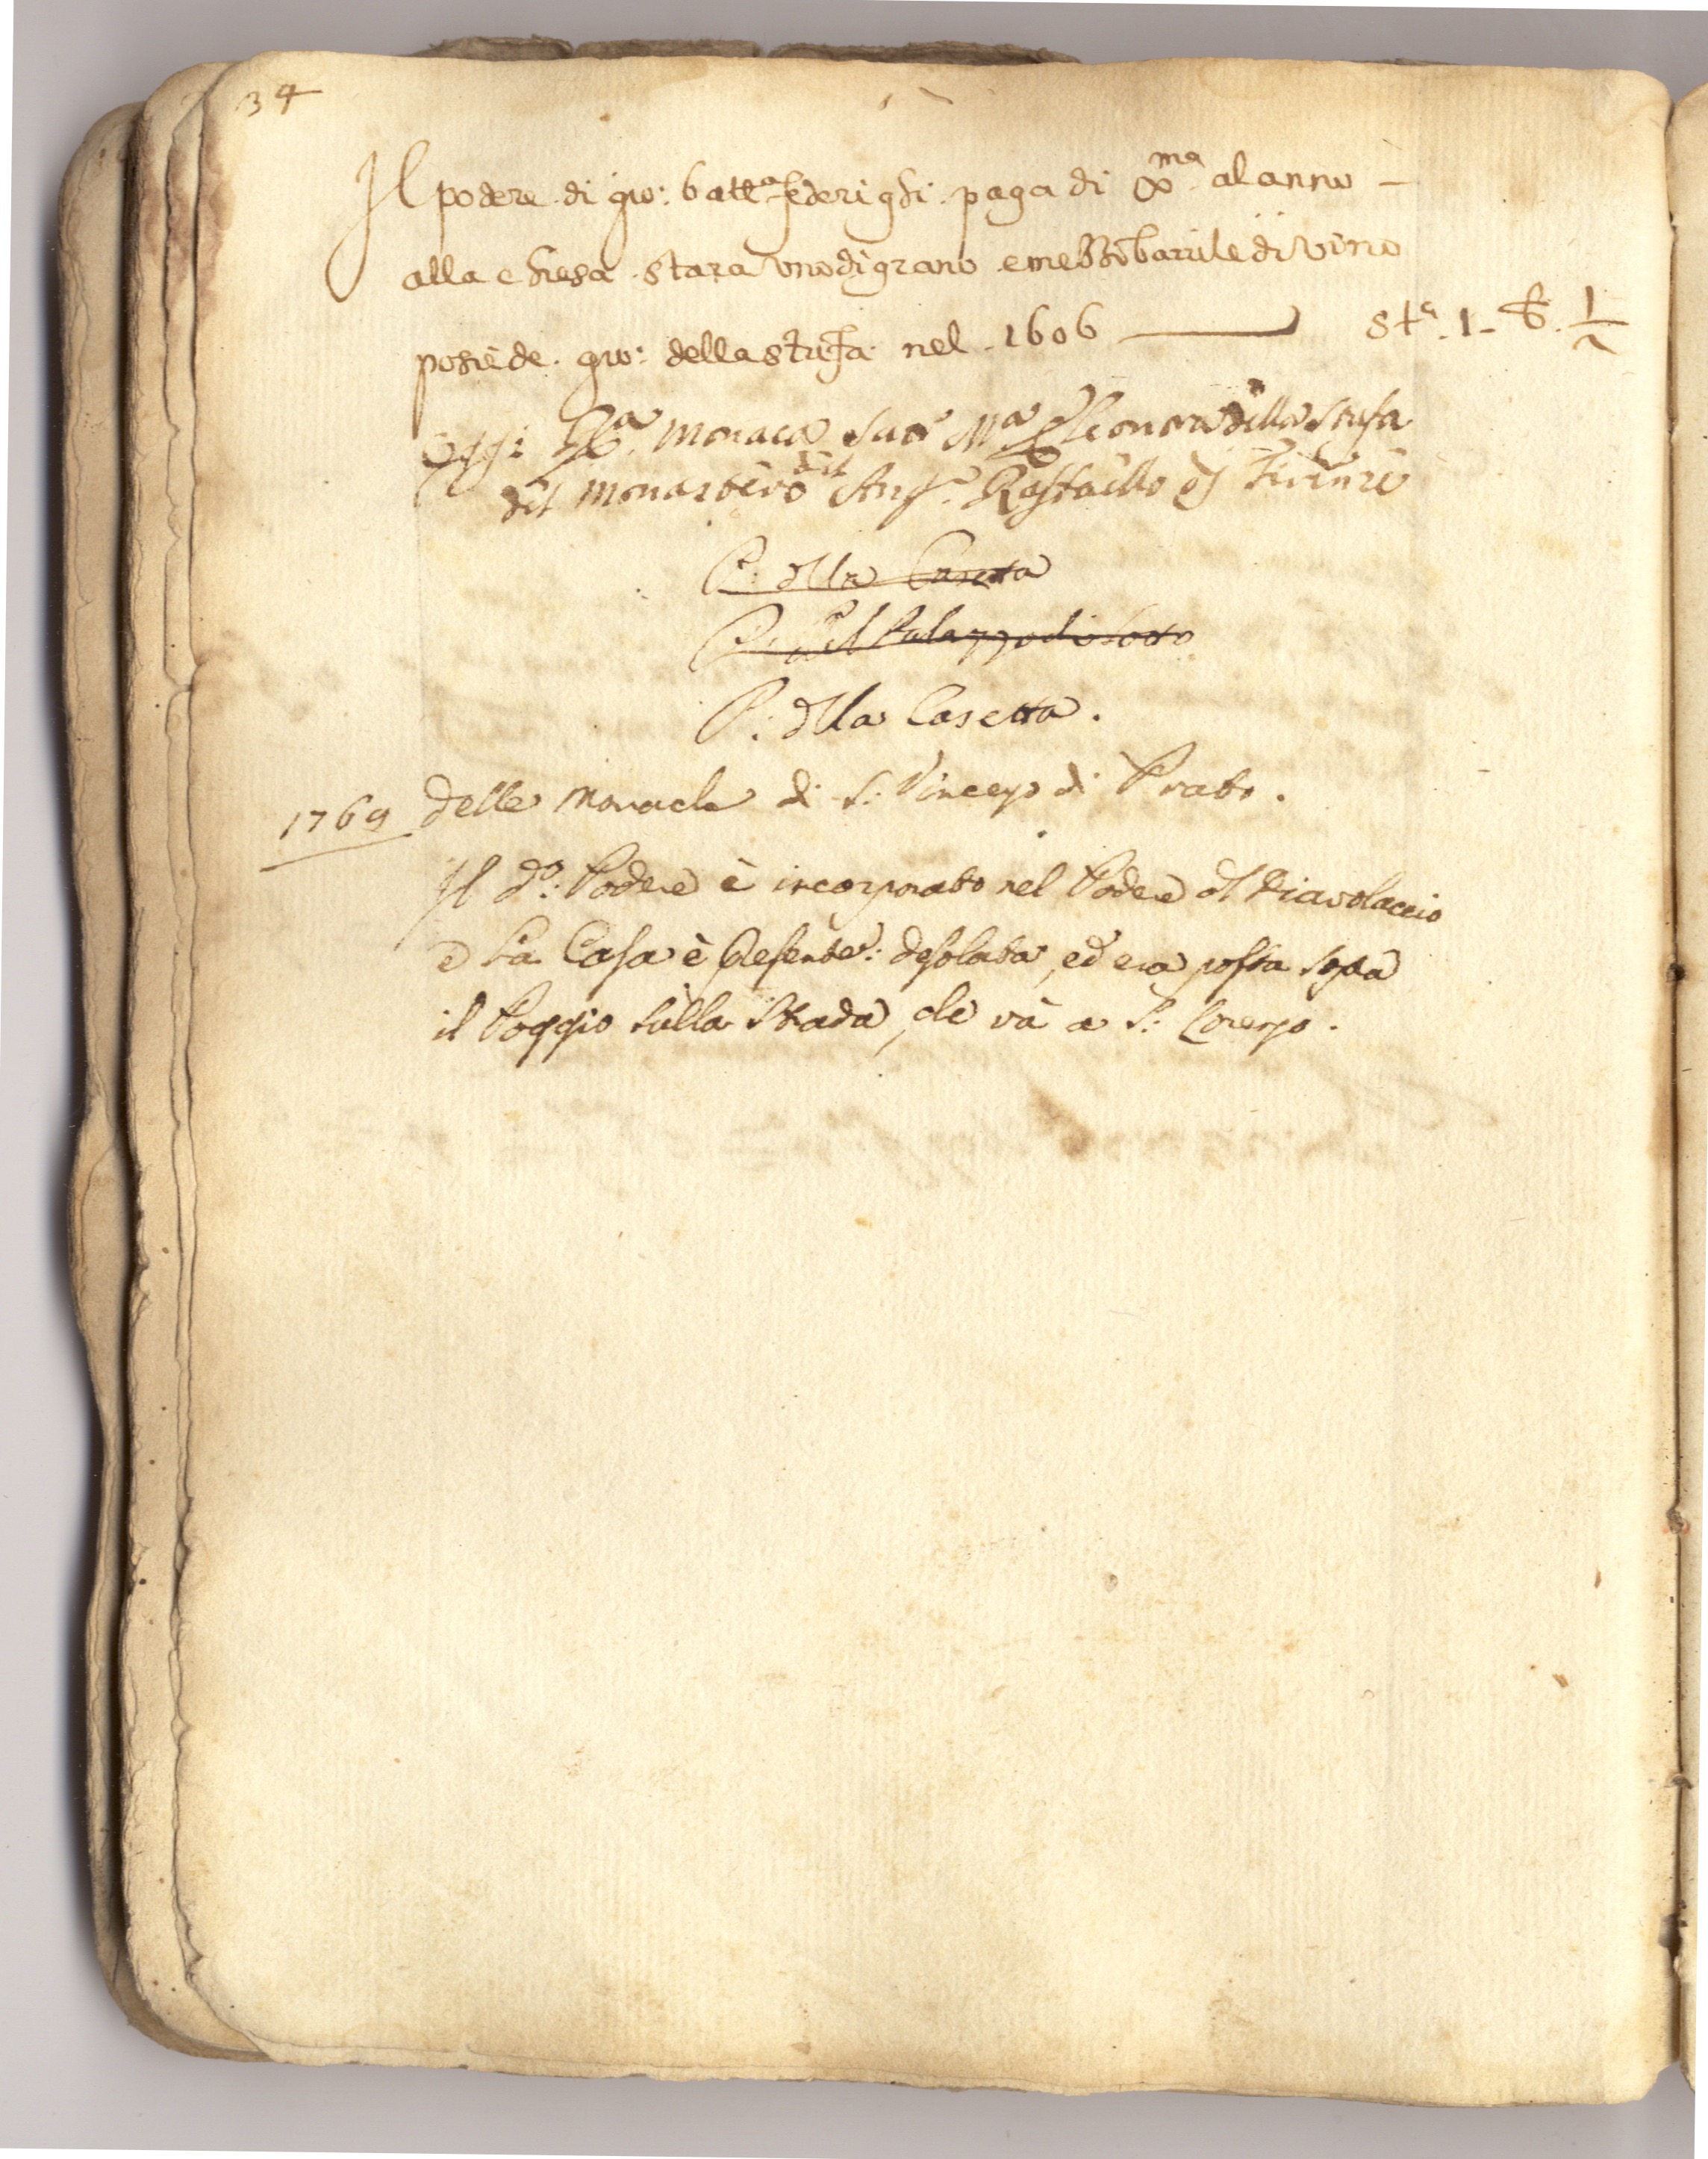 34
Il podere di gio: batta federighi paga di Xma al anno —
alla chiesa stara uno di grano e mezzo barrile di vino
posiede gio: della stufa nel 1606 — sta. 1 - b. 1/2
Oggi La Monaca Suor Ma Eleonora della Stufa
del monastero del Ango. Raffaello di Firenze
P: della Casetta
P: del Palazzo di sotto
P: della Casetta.
1769 delle Monache di S: Vincenzo di Prato.
Il do: Podere è incorporato nel Podere del Diavolaccio
e la Casa è presente: desolata, ed era posta sopra
il Poggio sulla Strada, che và a S: Lorenzo.